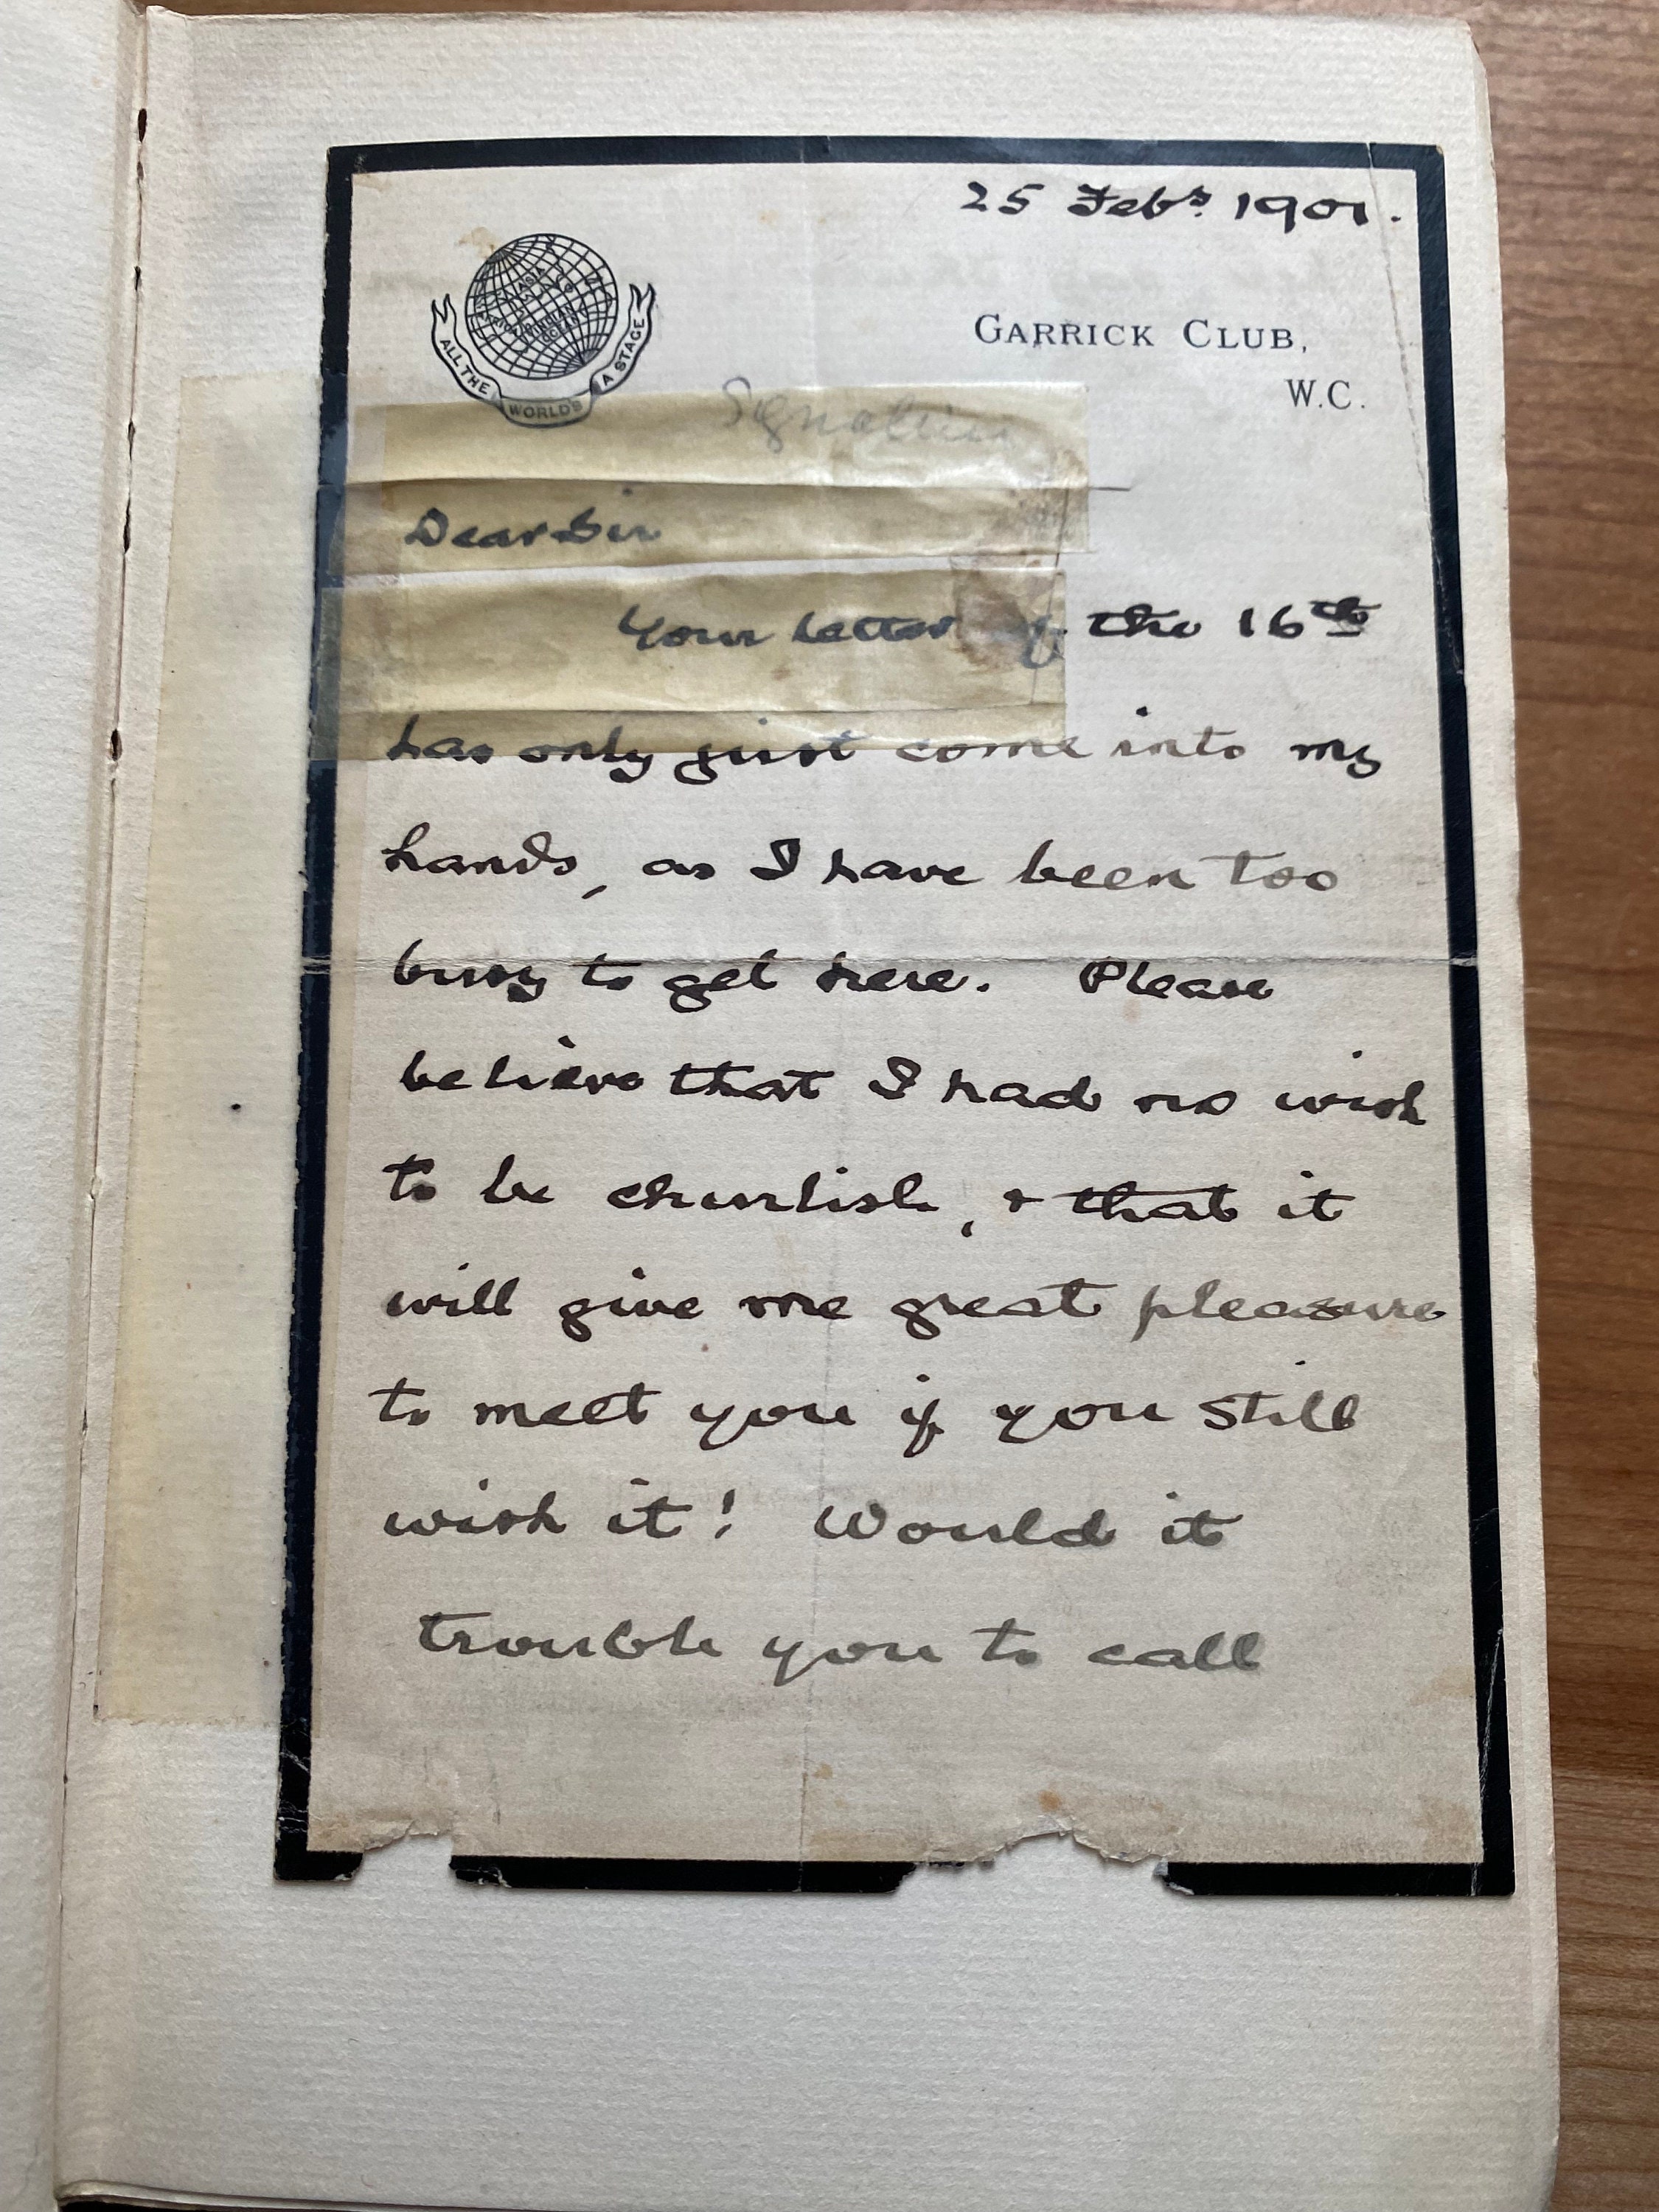 25 Feby. 1901.
ALL THE WORLD'S A STAGE
GARRICK CLUB,
W.C.
Dear Sir
Your letter of the 16th
has only just come into my
hands, as I have been too
busy to get here. Please
believe that I had no wish
to be churlish, & that it
will give me great pleasure
to meet you if you still
wish it! Would it
trouble you to call